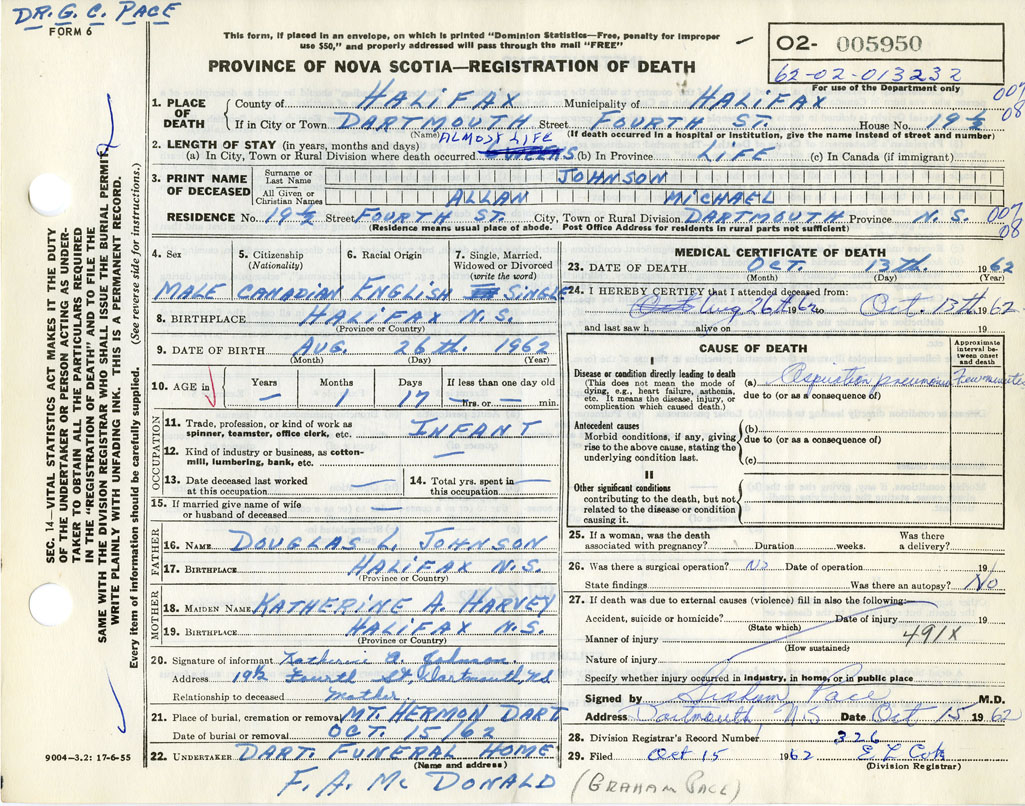 DR. G. C. PACE
FORM 6
This form, if placed in an envelope, on which is printed "Dominion Statistics—Free, penalty for improper
use $50," and properly addressed will pass through the mail "FREE"
PROVINCE OF NOVA SCOTIA—REGISTRATION OF DEATH
02- 005950
62-02-013232
For use of the Department only
007
08
1. PLACE OF DEATH County of HALIFAX Municipality of HALIFAX
If in City or Town DARTMOUTH Street FOURTH ST. House No. 19½
(Name) (If death occurred in a hospital or institution, give the name instead of street and number)
2. LENGTH OF STAY (in years, months and days) ALMOST LIFE
(a) In City, Town or Rural Division where death occurred WEEKS (b) In Province LIFE (c) In Canada (if immigrant)
3. PRINT NAME OF DECEASED Surname or Last Name JOHNSON
All Given or Christian Names ALLAN MICHAEL
RESIDENCE No. 19½ Street FOURTH ST. City, Town or Rural Division DARTMOUTH Province N.S. 007
08
(Residence means usual place of abode. Post Office Address for residents in rural parts not sufficient)
4. Sex 5. Citizenship (Nationality) 6. Racial Origin 7. Single, Married, Widowed or Divorced (write the word)
MALE CANADIAN ENGLISH SINGLE
8. BIRTHPLACE HALIFAX N.S.
(Province or Country)
9. DATE OF BIRTH AUG. 26th 1962
(Month) (Day) (Year)
10. AGE in Years Months Days If less than one day old
— 1 17 — hrs. or — min.
OCCUPATION
11. Trade, profession, or kind of work as spinner, teamster, office clerk, etc. INFANT
12. Kind of industry or business, as cotton-mill, lumbering, bank, etc. —
13. Date deceased last worked at this occupation — 14. Total yrs. spent in this occupation —
15. If married give name of wife or husband of deceased —
FATHER
16. NAME DOUGLAS L. JOHNSON
17. BIRTHPLACE HALIFAX N.S.
(Province or Country)
MOTHER
18. MAIDEN NAME KATHERINE A. HARVEY
19. BIRTHPLACE HALIFAX N.S.
(Province or Country)
20. Signature of informant Katherine A. Johnson.
Address 19½ Fourth St Dartmouth, NS
Relationship to deceased Mother.
21. Place of burial, cremation or removal MT. HERMON DART
Date of burial or removal OCT. 15/62
22. UNDERTAKER DART. FUNERAL HOME
(Name and address)
F. A. McDONALD (GRAHAM PACE)
9004—3.2: 17-6-55
MEDICAL CERTIFICATE OF DEATH
23. DATE OF DEATH OCT. 13th. 1962
(Month) (Day) (Year)
24. I HEREBY CERTIFY that I attended deceased from:
Aug 26th 1962 to Oct. 13th 1962.
and last saw h alive on 19
CAUSE OF DEATH
Approximate interval between onset and death
I
Disease or condition directly leading to death
(This does not mean the mode of dying, e.g., heart failure, asthenia, etc. It means the disease, injury, or complication which caused death.)
(a) Aspiration pneumonia Few minutes
due to (or as a consequence of)
Antecedent causes
Morbid conditions, if any, giving rise to the above cause, stating the underlying condition last.
(b)
due to (or as a consequence of)
(c)
II
Other significant conditions
contributing to the death, but not related to the disease or condition causing it.
25. If a woman, was the death associated with pregnancy? Duration weeks. Was there a delivery?
26. Was there a surgical operation? No Date of operation 19
State findings Was there an autopsy? No
27. If death was due to external causes (violence) fill in also the following:—
Accident, suicide or homicide? Date of injury 19
(State which)
Manner of injury 491X
(How sustained)
Nature of injury
Specify whether injury occurred in industry, in home, or in public place
Signed by Graham Pace M.D.
Address Dartmouth NS Date Oct 15 1962
28. Division Registrar's Record Number 326
29. Filed Oct 15 1962
(Division Registrar)
SEC. 14—VITAL STATISTICS ACT MAKES IT THE DUTY
OF THE UNDERTAKER OR PERSON ACTING AS UNDER-
TAKER TO OBTAIN ALL THE PARTICULARS REQUIRED
IN THE "REGISTRATION OF DEATH" AND TO FILE THE
SAME WITH THE DIVISION REGISTRAR WHO SHALL ISSUE THE BURIAL PERMIT.
WRITE PLAINLY WITH UNFADING INK. THIS IS A PERMANENT RECORD.
Every item of information should be carefully supplied. (See reverse side for instructions.)